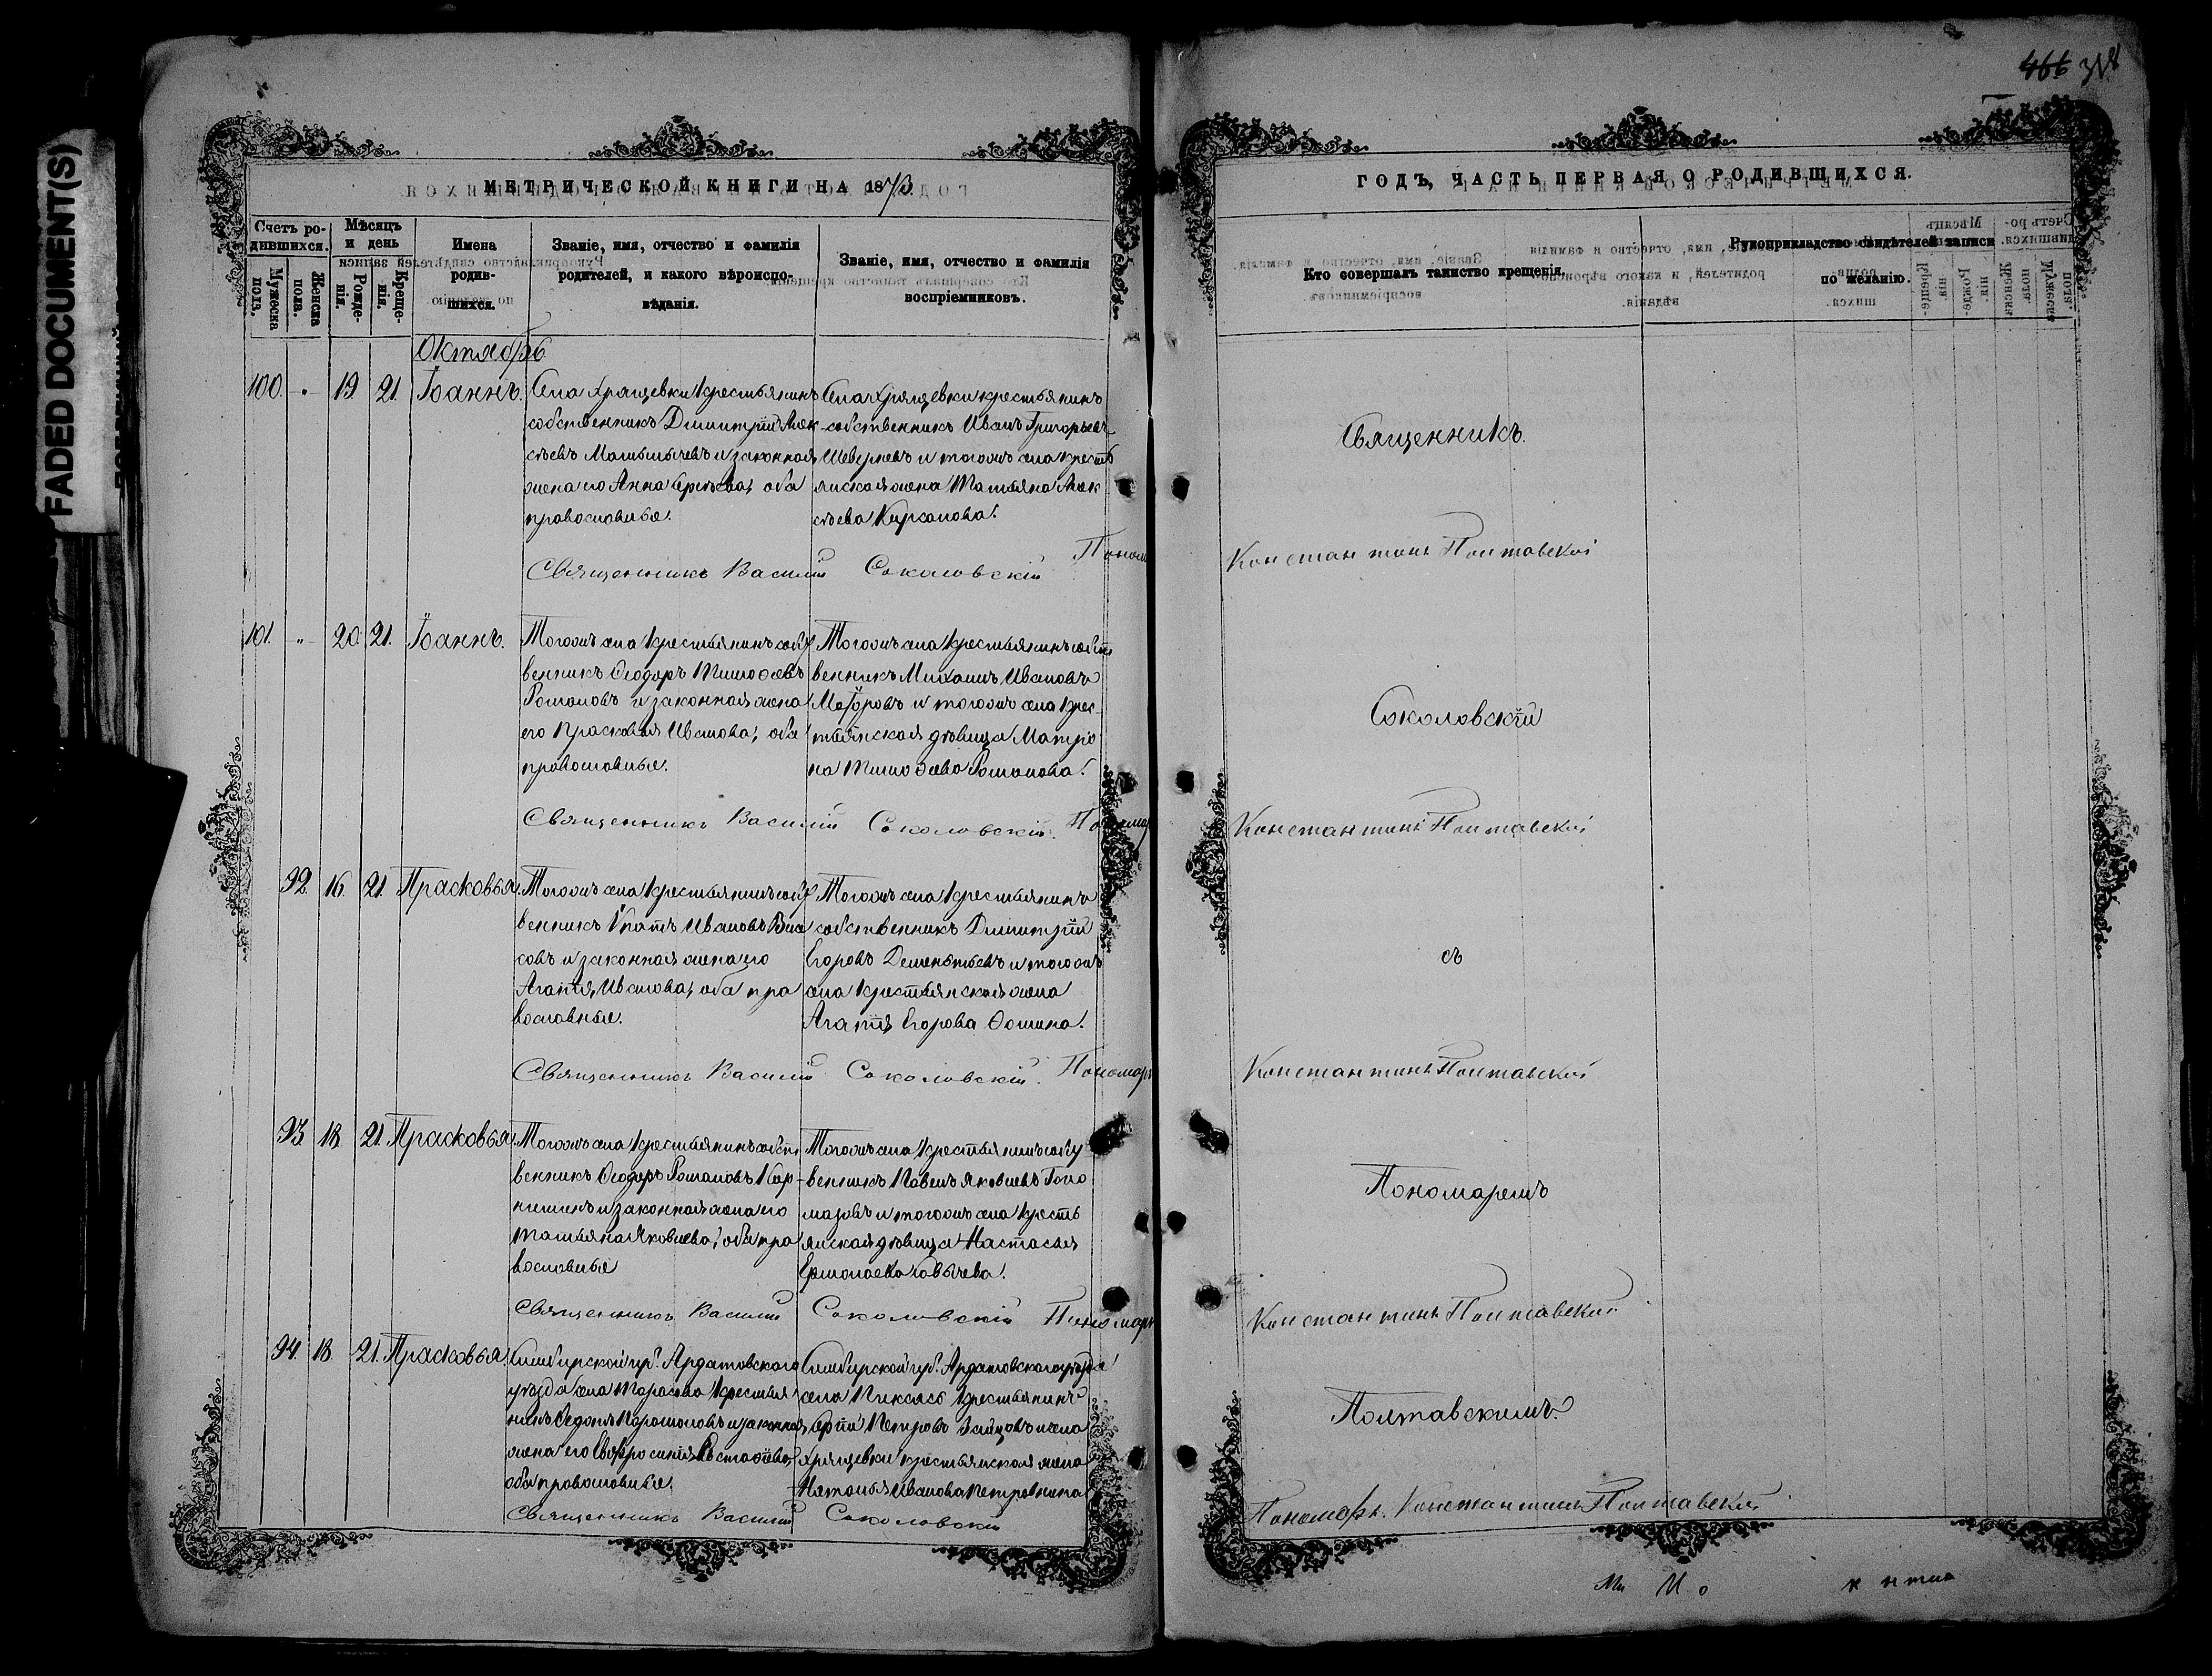 FADED DOCUMENT(S)
466
МЕТРИЧЕСКОЙ КНИГИ НА 1873
Счетъ родившихся.
Мужеска пола.
Женска пола.
Мѣсяцъ и день
Рожденія.
Крещенія.
Имена родившихся.
Званіе, имя, отчество и фамилія родителей, и какого вѣроисповѣданія.
Званіе, имя, отчество и фамилія воспріемниковъ.
Октябрь
100. „ 19 21. Іоаннъ.
Села Хрящевки крестьянинъ
собственникъ Димитрій Алек
сѣевъ и законная
жена его Анна Сергѣева, оба
православные.
Села Хрящевки крестьянинъ
собственникъ Иванъ Григорьевъ
и тогожъ села кресть
янская жена Татьяна Алек
сѣева Кирсанова.
Священникъ Василій Соколовскій Поном
101. „ 20 21. Іоаннъ.
Тогожъ села крестьянинъ собст
венникъ Ѳеодоръ Тимоѳеевъ
Романовъ и законная жена
его Прасковья Иванова, оба
православные.
Тогожъ села крестьянинъ собст
венникъ Михаилъ Ивановъ
и тогожъ села крес-
тьянская дѣвица Матро
на Тимоѳеева Романова.
Священникъ Василій Соколовскій. Пономар
92. 16. 21. Прасковья.
Тогожъ села крестьянинъ собст
венникъ Игнатъ Ивановъ Вла
совъ и законная жена его
Агапія Иванова, оба пра
вославные.
Тогожъ села крестьянинъ
собственникъ Димитрій
Егоровъ Дементьевъ и тогожъ
села крестьянская жена
Агапія Егорова Ѳомина.
Священникъ Василій Соколовскій. Пономарь
93. 18. 21. Прасковья.
Тогожъ села крестьянинъ собст
венникъ Ѳеодоръ Романовъ Кор-
нишинъ и законная жена его
Татьяна Яковлева, оба пра
вославные
Тогожъ села крестьянинъ собст
венникъ Павелъ Яковлевъ Голо
мазовъ и тогожъ села кресть
янская дѣвица Настасья
Ермолаева
Священникъ Василій Соколовскій Пономарь
94. 18. 21. Прасковья.
Симбирской губ. Ардатовскаго
уѣзда села Тарасова крестья
нинъ и законная
жена его Евфросинія
оба православные.
Симбирской губ. Ардатовскаго уѣзда
села Пиксясь крестьянинъ
Сергій Петровъ Зайцовъ и села
Хрящевки крестьянская жена
Наталья Иванова
Священникъ Василій Соколовскій
ГОДЪ, ЧАСТЬ ПЕРВАЯ О РОДИВШИХСЯ.
Кто совершалъ таинство крещенія.
Рукоприкладство свидѣтелей записи по желанію.
Священникъ.
Константинъ Полтавской
Соколовскій
Константинъ Полтавской
съ
Константинъ Полтавской
Пономаремъ
Константинъ Полтавской
Полтавскимъ.
Пономарь. Константинъ Полтавской